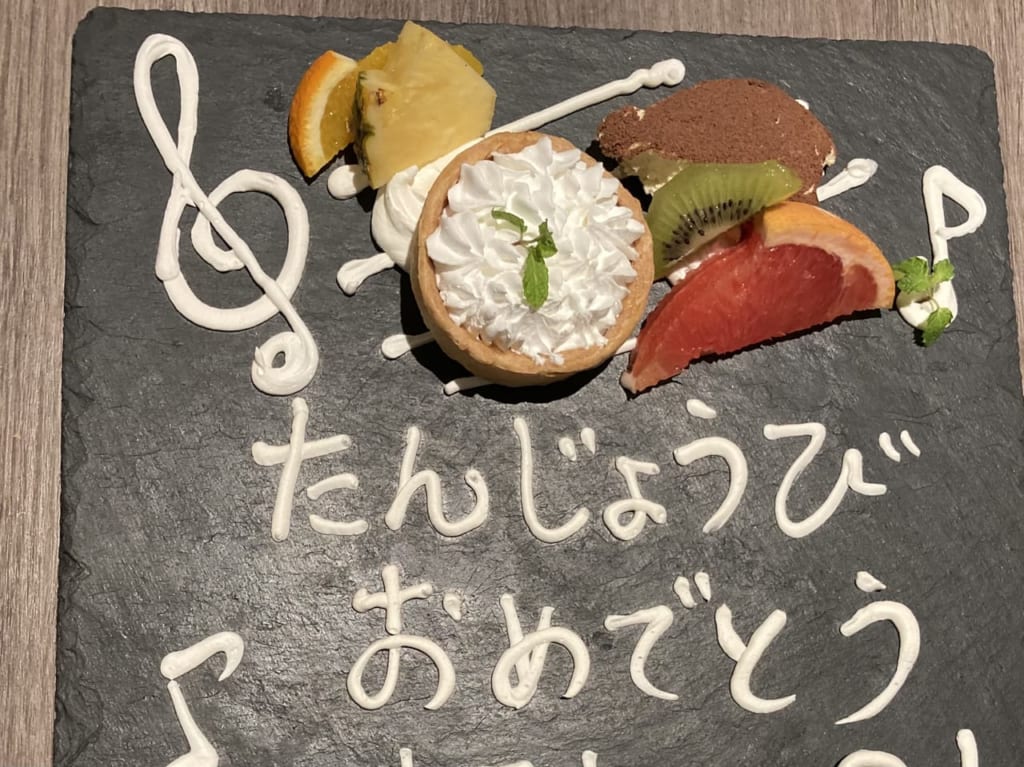 たんじょうび
おめでとう